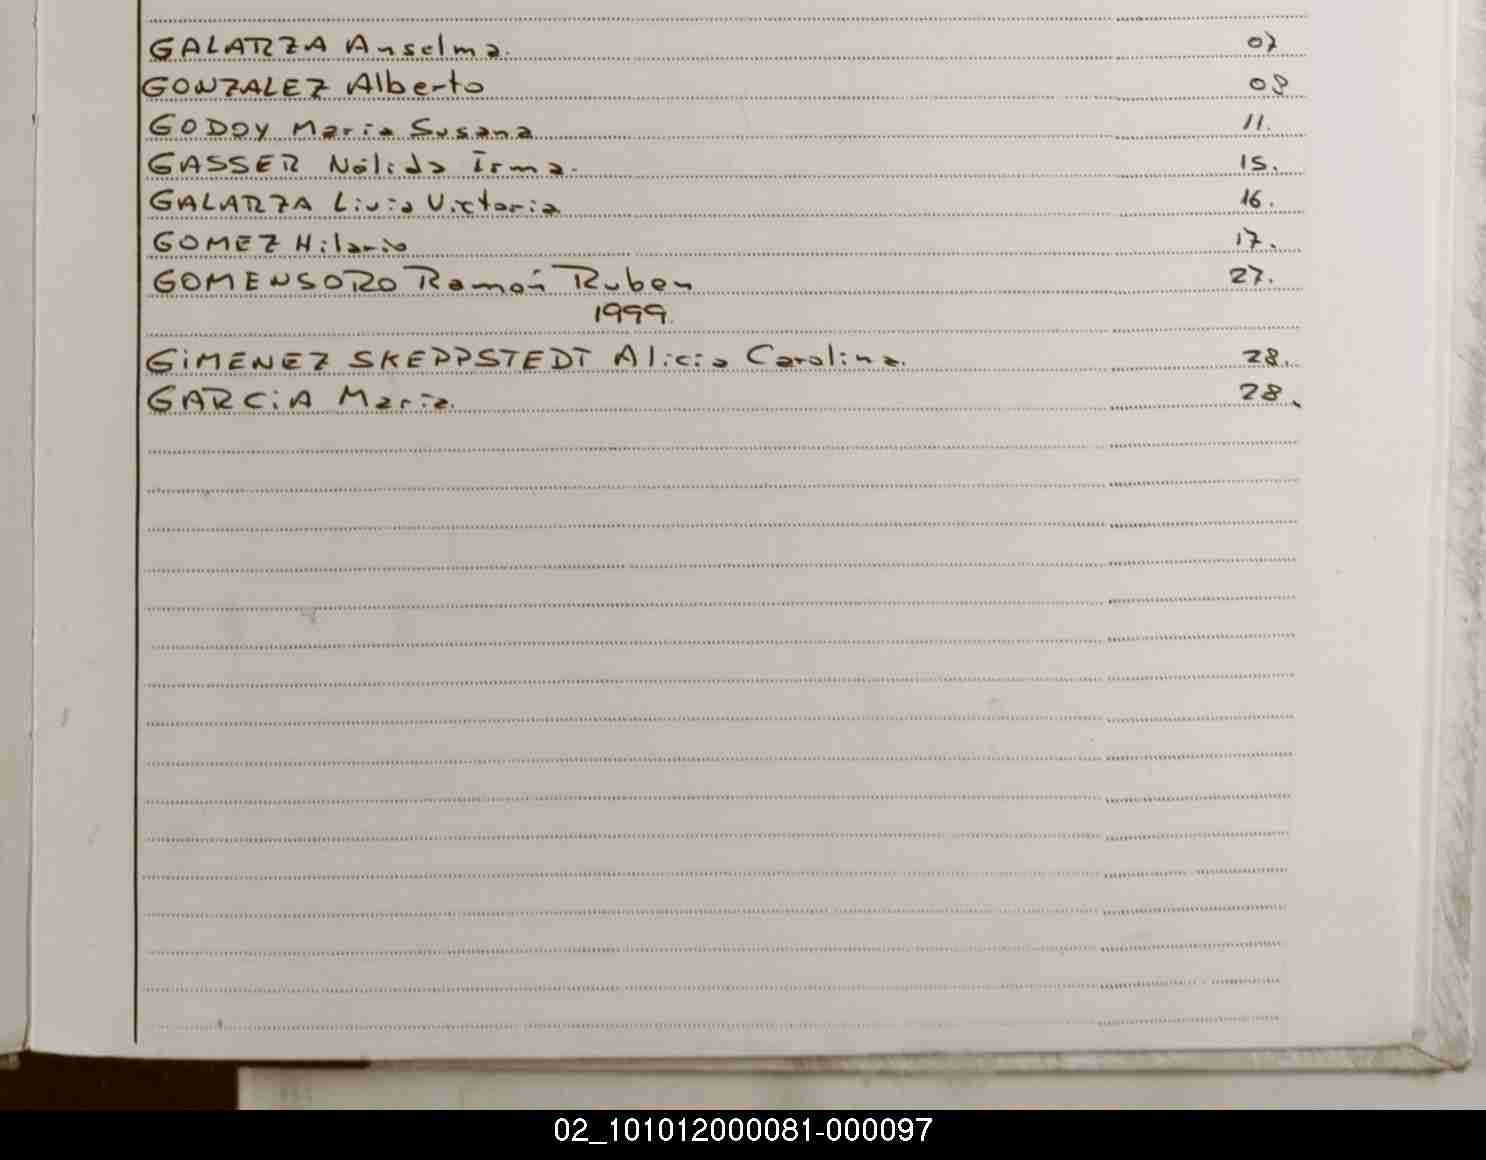 GALARZA Anselma. 07
GONZALEZ Alberto 08
GODOY Maria Susana 11.
GASSER Nélida Irma. 15.
GALARZA Livia Victoria 16.
GOMEZ Hilario 17.
GOMENSORO Ramón Ruben 27.
1999.
GiMENEZ SKEPPSTEDT Alicia Carolina. 28.
GARCiA Maria. 28.
02_101012000081-000097